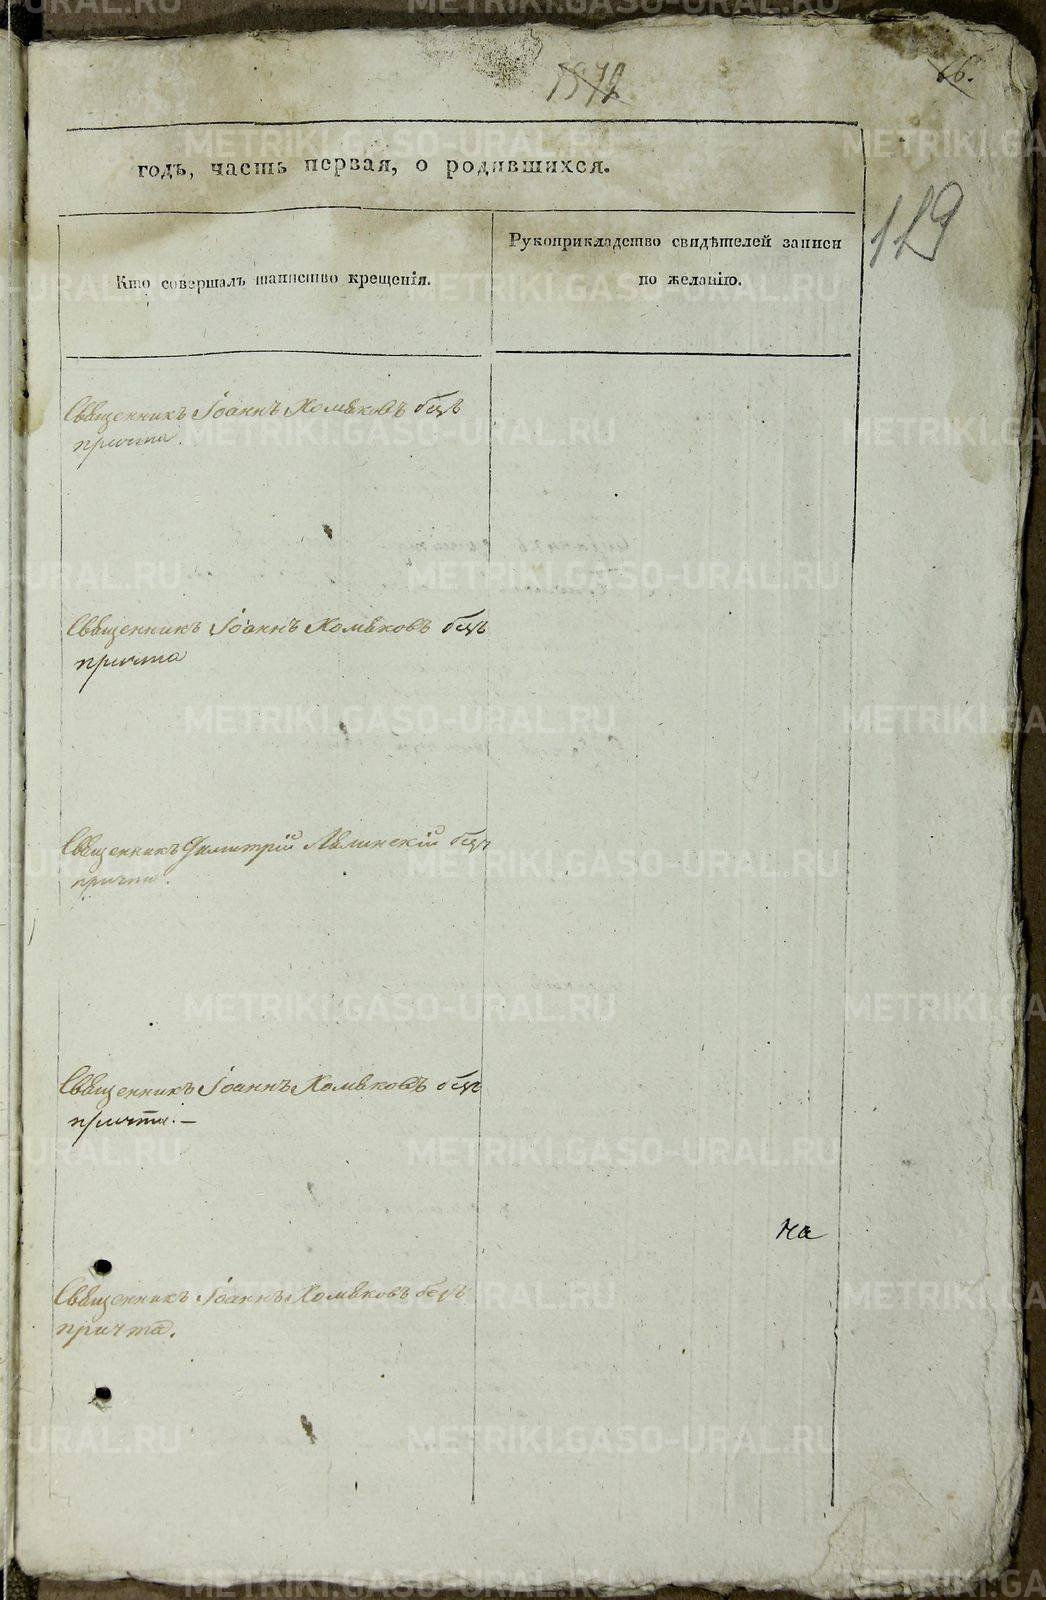 66.
годъ, часть первая, о родившихся.
119
Кто совершалъ таинство крещенія.
Рукоприкладство свидѣтелей записи
по желанію.
Священникъ Іоаннъ Хомяковъ безъ
причта.
Священникъ Іоаннъ Хомяковъ безъ
причта
Священникъ Димитрій безъ
причта.
Священникъ Іоаннъ Хомяковъ безъ
причта. —
На
Священникъ Іоаннъ Хомяковъ безъ
причта.
METRIKI.GASO-URAL.RU